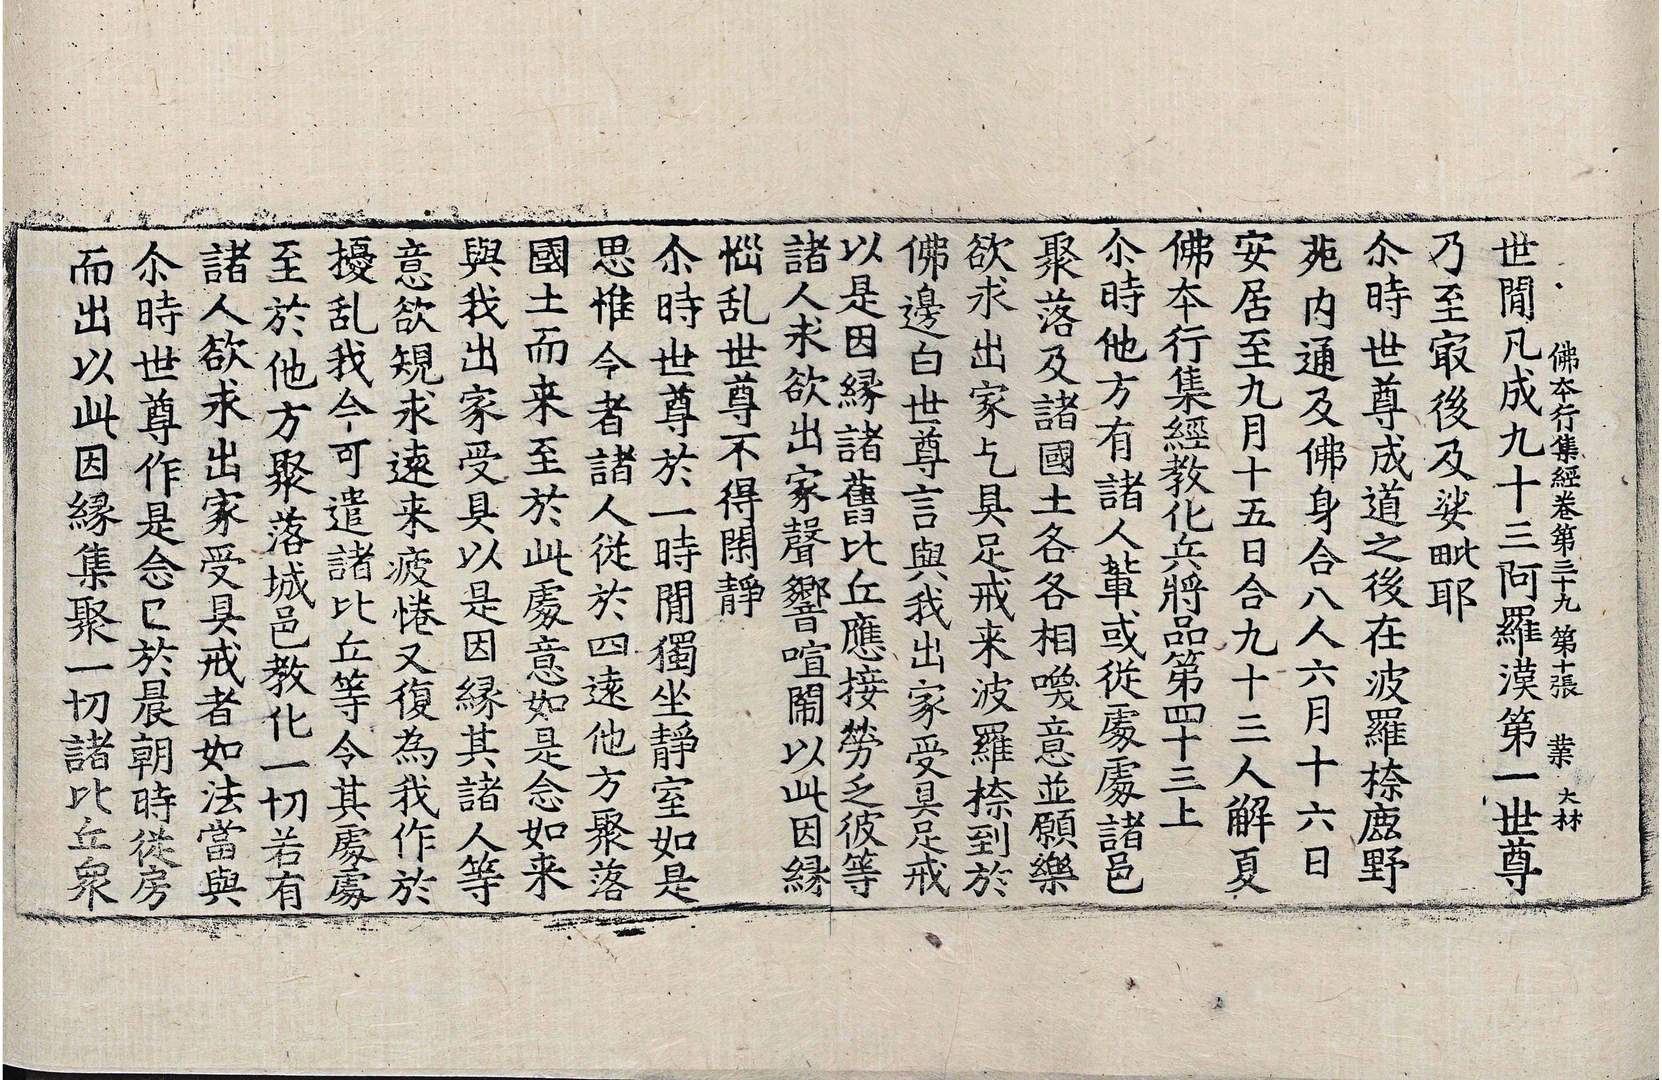 佛夲行集經卷第三十九 第十張 業 大林
世閒凡成九十三阿羅漢第一世尊
乃至㝡後及娑毗耶
尒時世尊成道之後在波羅㮈鹿野
苑內通及佛身合八人六月十六日
安居至九月十五日合九十三人解夏
佛夲行集經教化兵將品第四十三上
尒時他方有諸人軰或從處處諸邑
聚落及諸國土各各相喚意並願樂
欲求出家乞具足戒来波羅㮈到於
佛邊白世尊言與我出家受具足戒
以是因縁諸舊比丘應接勞乏彼等
諸人求欲出家聲響喧閙以此因縁
惱乱世尊不得閑靜
尒時世尊於一時閒獨坐靜室如是
思惟今者諸人從於四遠他方聚落
國土而来至於此處意如是念如来
與我出家受具以是因縁其諸人等
意欲規求遠来疲惓又復為我作於
擾乱我今可遣諸比丘等令其處處
至於他方聚落城邑教化一切若有
諸人欲求出家受具戒者如法當與
尒時世尊作是念已於晨朝時從房
而出以此因縁集聚一切諸比丘衆